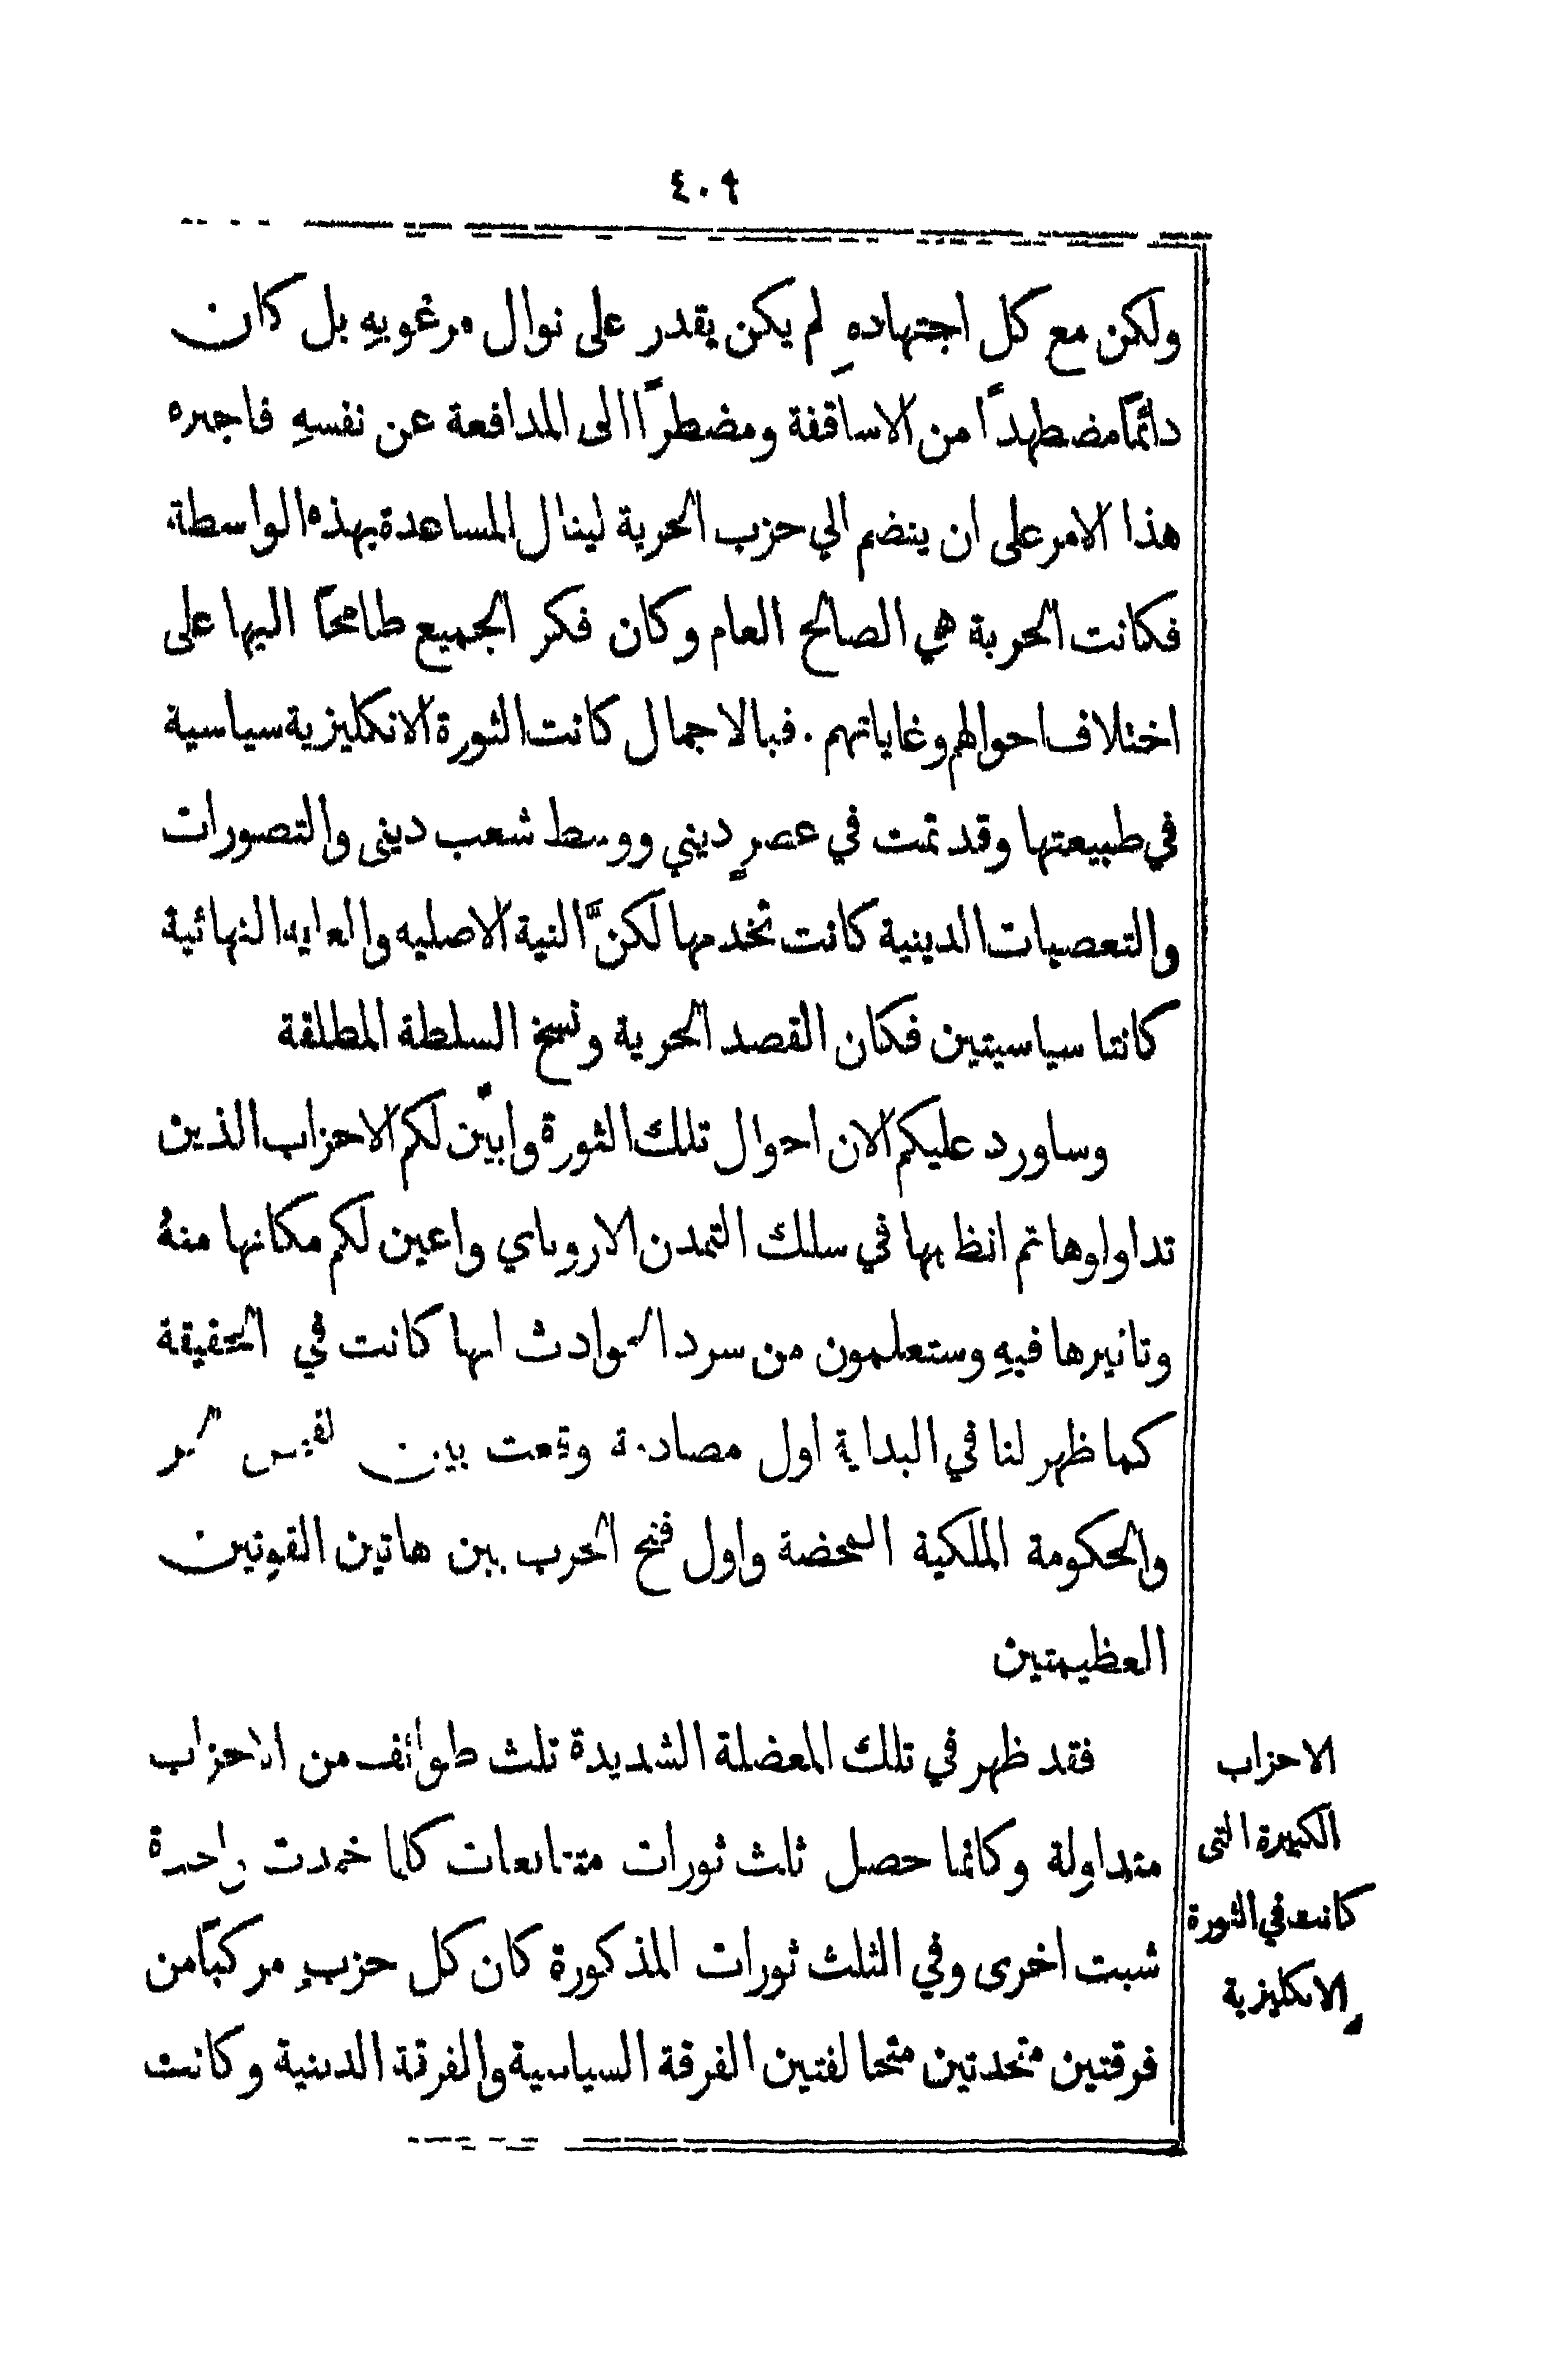 ٤٠٩
ولكن مع كل اجتهادهِ لم يكن يقدر على نوال مرغوبهِ بل كان
دائمًا مضطهدًا من الاساقفة ومضطرًا الى المدافعة عن نفسهِ فاجبره
هذا الامر على ان ينضم الي حزب الحرية لينال المساعدة بهذه الواسطة
فكانت الحرية هي الصالح العام وكان فكر الجميع طامحًا اليها على
اختلاف احوالهم وغاياتهم . فبالاجمال كانت الثورة الانكليزية سياسية
في طبيعتها وقد تمت في عصرٍ ديني ووسط شعب دينى والتصورات
والتعصبات الدينية كانت تخدمها لكنَّ النية الاصليه والغايه النهائية
كانتا سياسيتين فكان القصد الحرية ونسخ السلطة المطلقة
وساورد عليكم الان احوال تلك الثورة وابيّن لكم الاحزاب الذين
تداولوها ثم انظمها في سلك التمدن الاروباي واعين لكم مكانها منهُ
وتاثيرها فيهِ وستعلمون من سرد الحوادث انها كانت في الحقيقة
كما ظهر لنا في البداية اول مصادمة وقعت بين
والحكومة الملكية المحضة واول فتح الحرب بين هاتين القوتين
العظيمتين
فقد ظهر في تلك المعضلة الشديدة ثلث طوائف من الاحزاب
متداولة وكانما حصل ثلث ثورات متتابعات كلما خمدت واحدة
شبت اخرى وفي الثلث ثورات المذكورة كان كل حزبٍ مركبًا من
فرقتين متحدتين متحالفتين الفرقة السياسية والفرقة الدينية وكانت
الاحزاب
الكبيرة التى
كانت في الثورة
الانكليزية